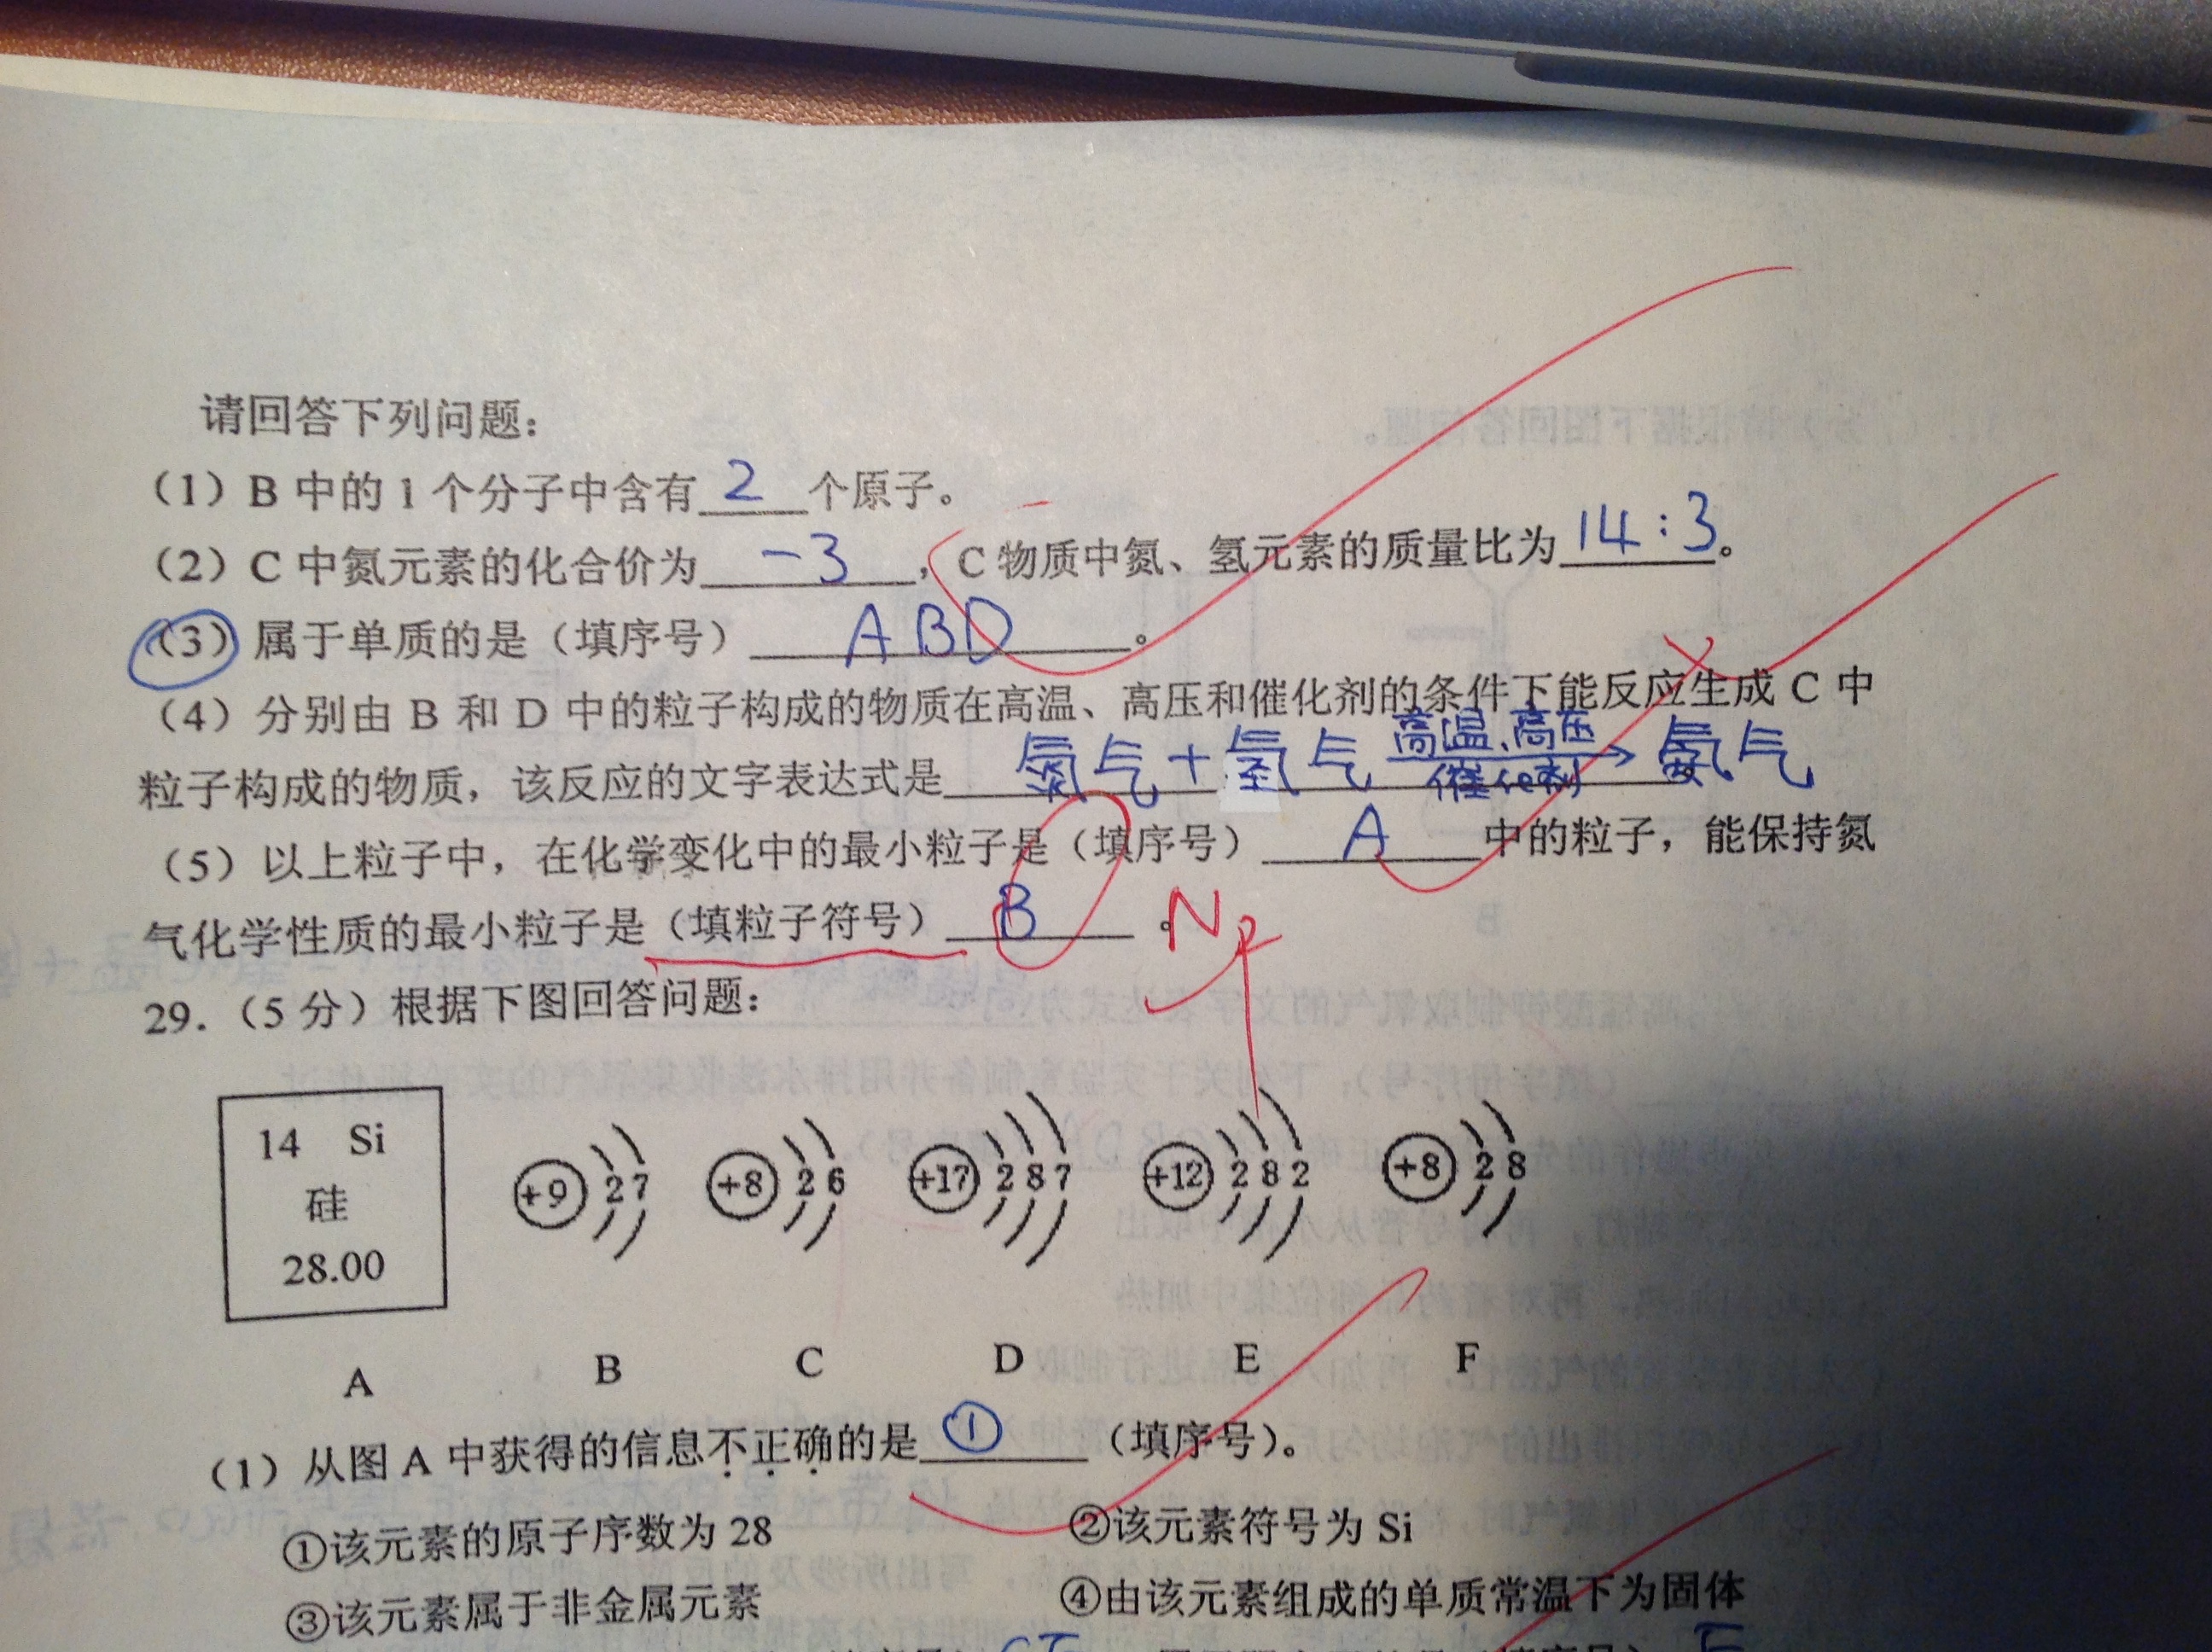 请回答下列问题：
（1）B 中的 1 个分子中含有 2 个原子。
（2）C 中氮元素的化合价为 -3 ，C 物质中氮、氢元素的质量比为 14:3 。
（3）属于单质的是（填序号） ABD 。
（4）分别由 B 和 D 中的粒子构成的物质在高温、高压和催化剂的条件下能反应生成 C 中
高温、高压
粒子构成的物质，该反应的文字表达式是 氮气+氢气 → 氨气
催化剂
（5）以上粒子中，在化学变化中的最小粒子是（填序号） A 中的粒子，能保持氮
气化学性质的最小粒子是（填粒子符号） B 。 N2
29.（5 分）根据下图回答问题：
14 Si
硅
28.00
+9 2 7
+8 2 6
+17 2 8 7
+12 2 8 2
+8 2 8
A B C D E F
（1）从图 A 中获得的信息不正确的是 ① （填序号）。
①该元素的原子序数为 28 ②该元素符号为 Si
③该元素属于非金属元素 ④由该元素组成的单质常温下为固体